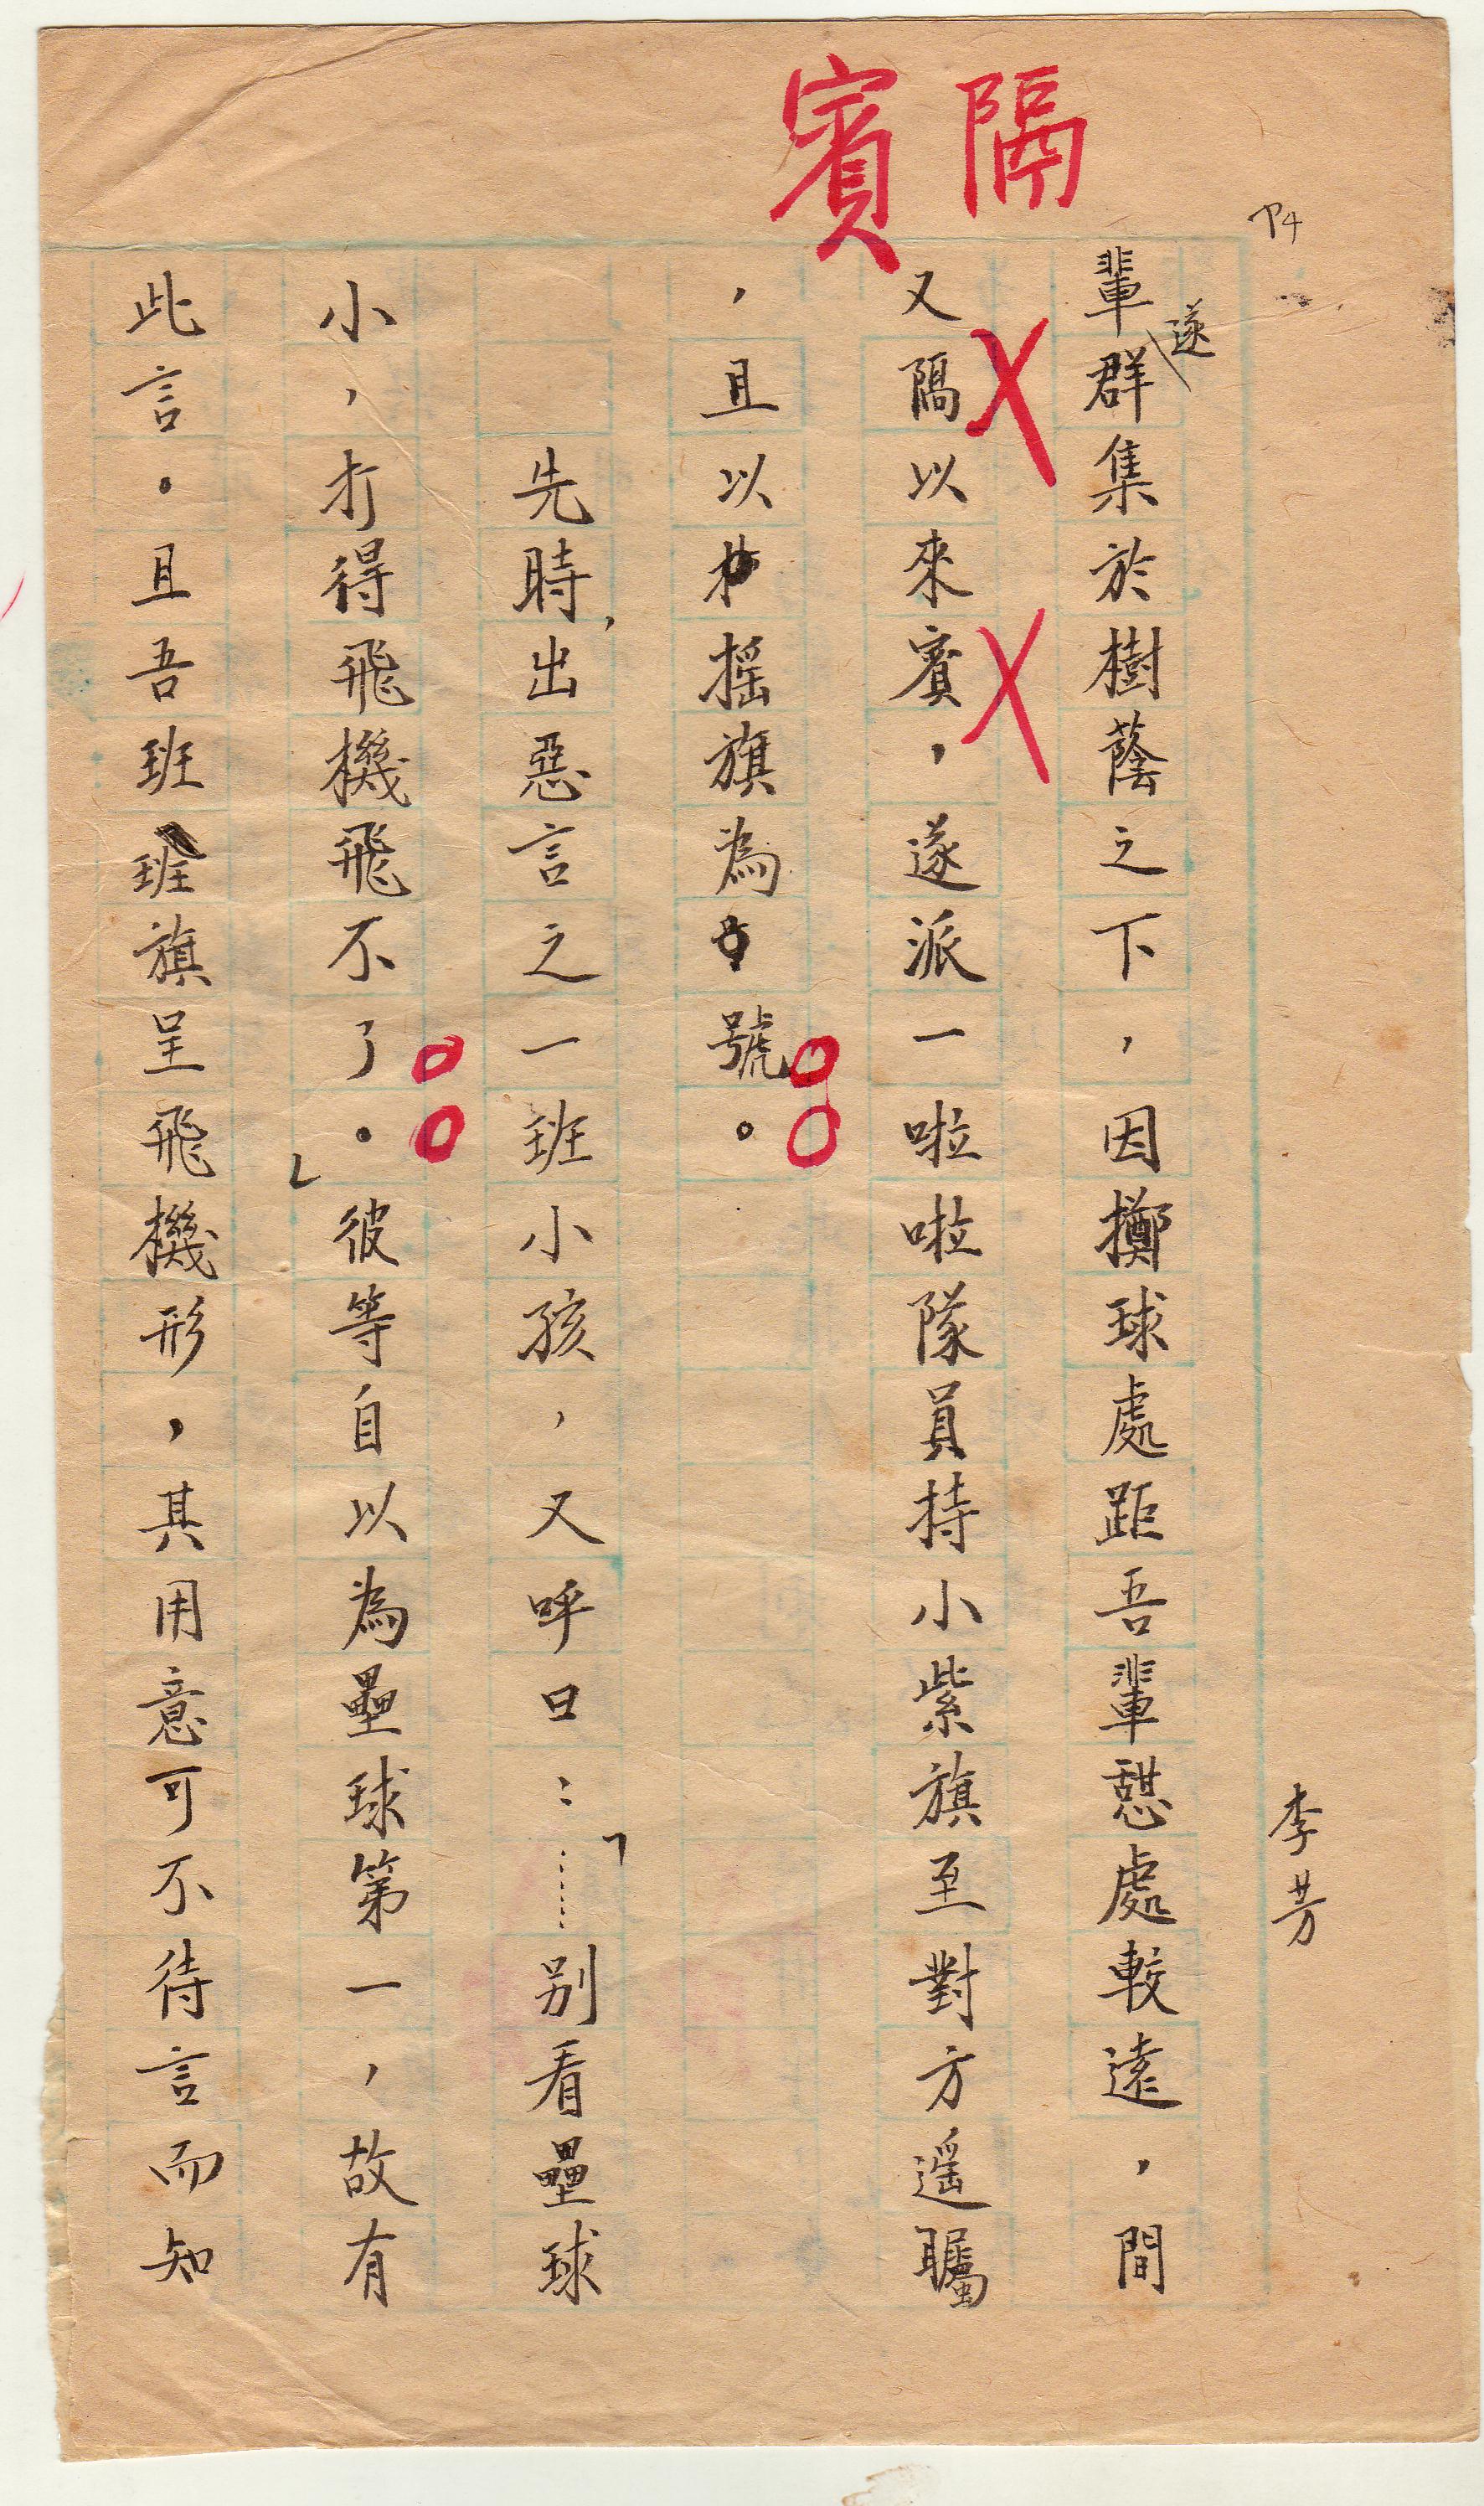 隔賓
P4
李芳
遂
輩群集於樹蔭之下，因擲球處距吾輩憇處較遠，間
又隔以來賓，遂派一啦啦隊員持小紫旗至對方遥矚
，且以摇旗為號。
先時，出惡言之一班小孩，又呼曰：「……别看壘球
小，打得飛機飛不了。」彼等自以為壘球第一，故有
此言。且吾班班旗呈飛機形，其用意可不待言而知